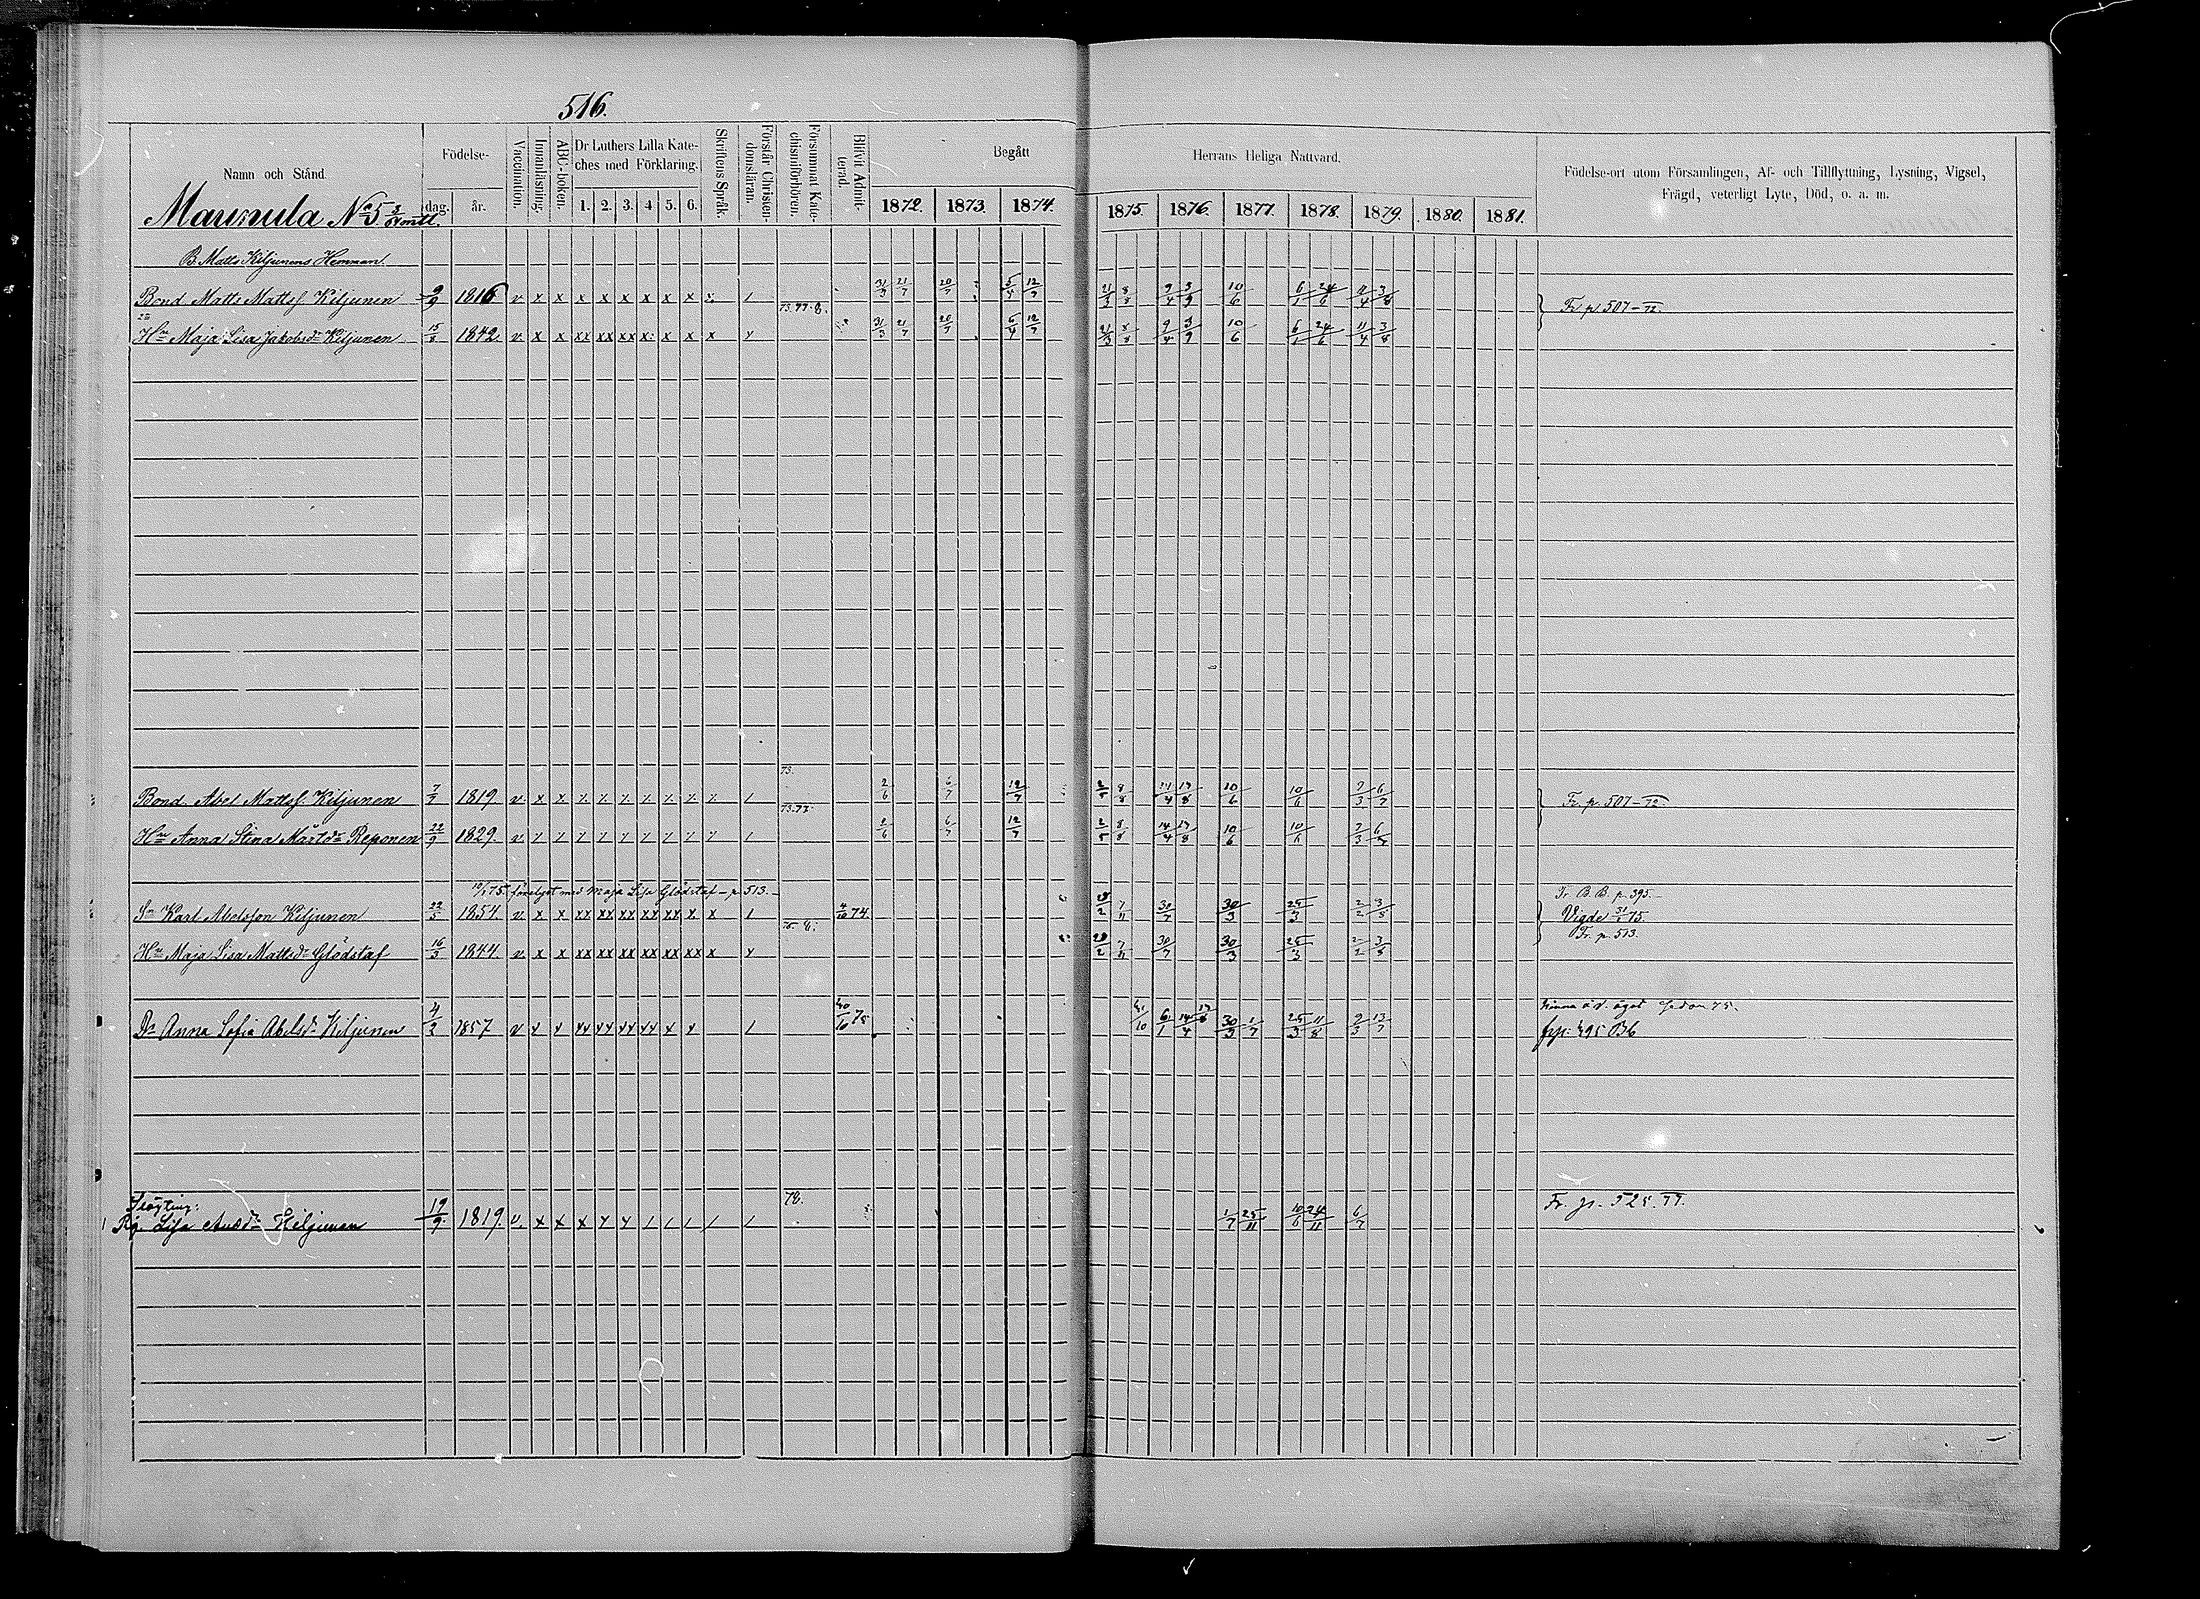 516.
Namn och Stånd.
Födelse-
dag.
år.
Vaccination.
Innanläsning.
ABC-boken.
Dr Luthers Lilla Kate-
ches med Förklaring.
1. 2. 3. 4. 5. 6.
Skriftens Språk.
Förstår Christen-
domsläran.
Försummat Kate-
chismiförhören.
Blifvit Admit-
terad.
Begått
Herrans Heliga Nattvard.
1872. 1873. 1874. 1875. 1876. 1877. 1878. 1879. 1880. 1881.
Födelse-ort utom Församlingen, Af- och Tillflyttning, Lysning, Vigsel,
Frägd, veterligt Lyte, Död, o. a. m.
Maunula No 5
B. Matts Kiljunens Hemman.
Bond. Matts Mattss. Kiljunen 9/9 1816 v x x x x x x x x x / 31/3 21/7 20/7 5/4 12/7 21/3 8/8 9/4 3/9 10/6 6/1 24/6 11/4 3/8 Fr. p. 507-72.
73.77.8.
Hu Maja Lisa Jakobsdr Kiljunen 15/8 1842. v x x xx xx xx x x x x y 31/3 21/7 20/7 5/4 12/7 21/3 8/8 9/4 3/9 10/6 6/1 24/6 11/4 3/8
73.
Bond. Abel Mattss. Kiljunen 7/7 1819. v x x x x x x x x x / 2/6 6/7 12/7 2/5 8/8 14/4 17/8 10/6 10/6 9/3 6/7 Fr. p. 507-72.
73.77.
Hu Anna Stina Mårtsdr Reponen 22/9 1829. v / / / / / / / / / / 2/6 6/7 12/7 2/5 8/8 14/4 17/8 10/6 10/6 9/3 6/7
10/1 75 förelyst med Maja Lisa Glödstaf - p. 513. -
Fr. B. B. p. 395.
Sn Karl Abelsson Kiljunen 22/5 1854. v x x xx xx xx xx xx x x / 4/10 74 28/2 7/11 30/7 30/3 25/3 2/2 3/8 Vigde 31/1 75
Fr. p. 513.
Hu Maja Lisa Mattsdr Glödstaf 16/3 1844. v x x xx xx xx xx xx xx x y 28/2 7/11 30/7 30/3 25/3 2/2 3/8
Dr Anna Sofia Abelsdr Kiljunen 4/2 1857 v x x xx xx xx xx x x / 75 6/1 14/4 17/8 30/3 1/7 25/3 11/8 9/3 13/7
78.
Slägting:
Pig. Lisa Kiljunen 19/9 1819. v. x x x y y / / / / / 1/7 25/11 10/6 24/11 6/7 Fr. p. 525. 77.